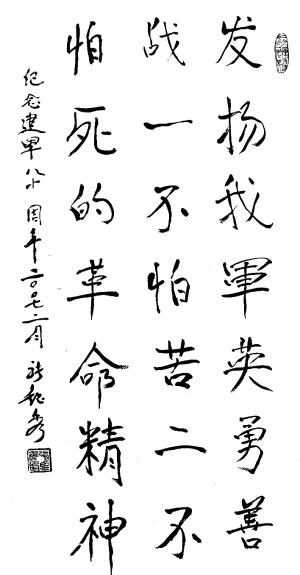 发扬我軍英勇善
战一不怕苦二不
怕死的革命精神
纪念建軍八十周年二〇〇七二月